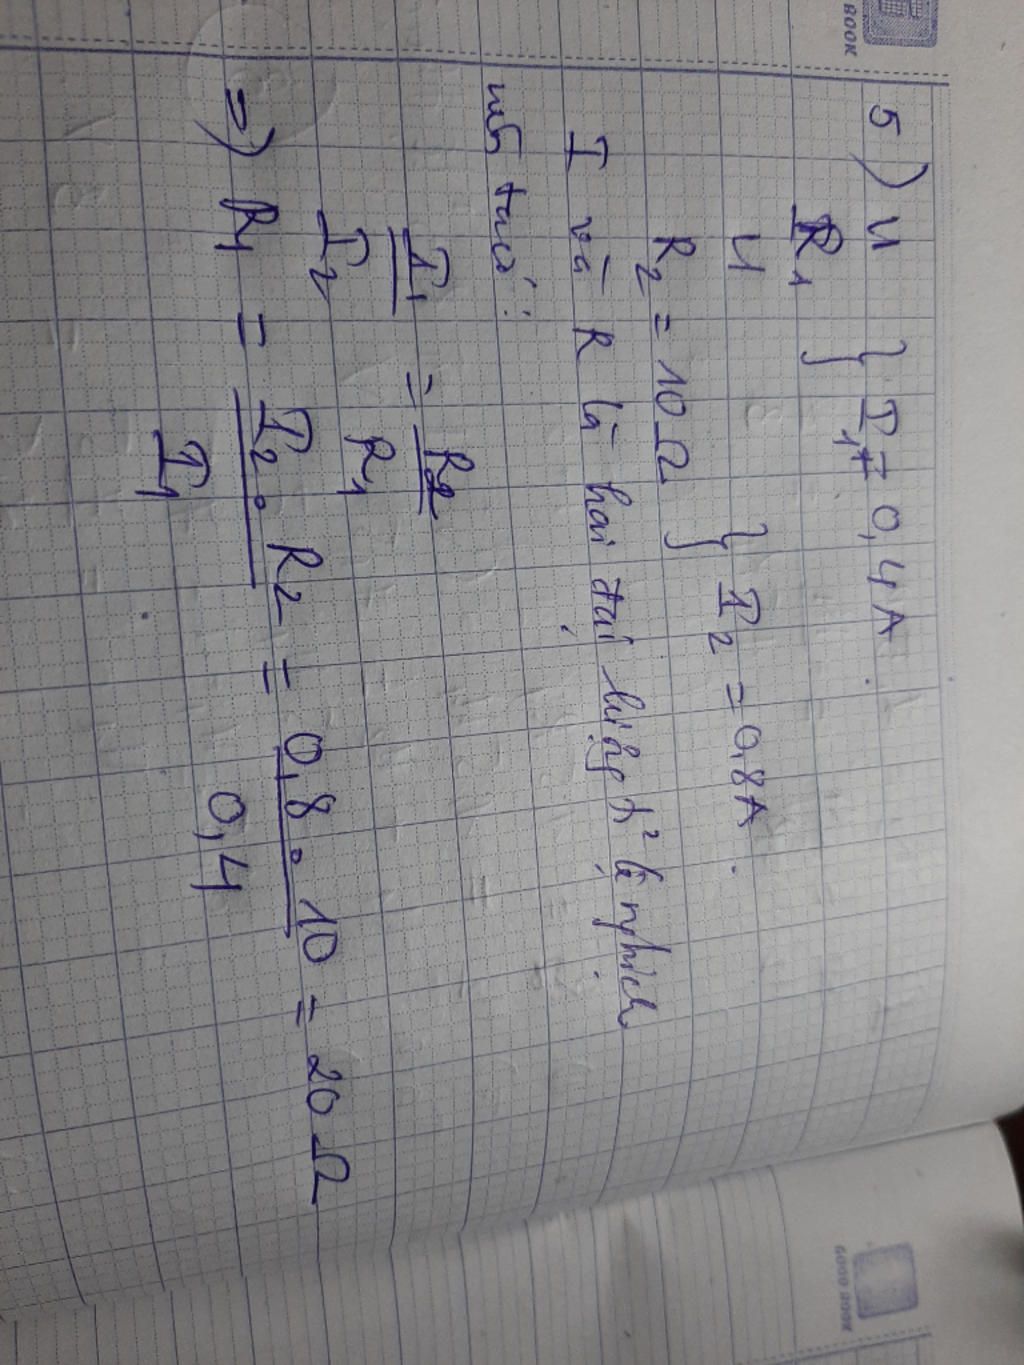 BOOK
5) U
R₁ } I₁ = 0,4A.
U
R₂ = 10Ω } I₂ = 0,8A.
I và R là hai đại lượng t² lệ nghịch
nên ta có:
I₁/I₂ = R₂/R₁
=> R₁ = I₂.R₂/I₁ = 0,8.10/0,4 = 20Ω
GOOD BOOK